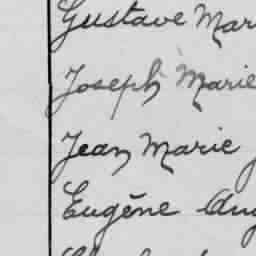 Gustave Mar
Joseph Marie
Jean Marie
Eugène Aug